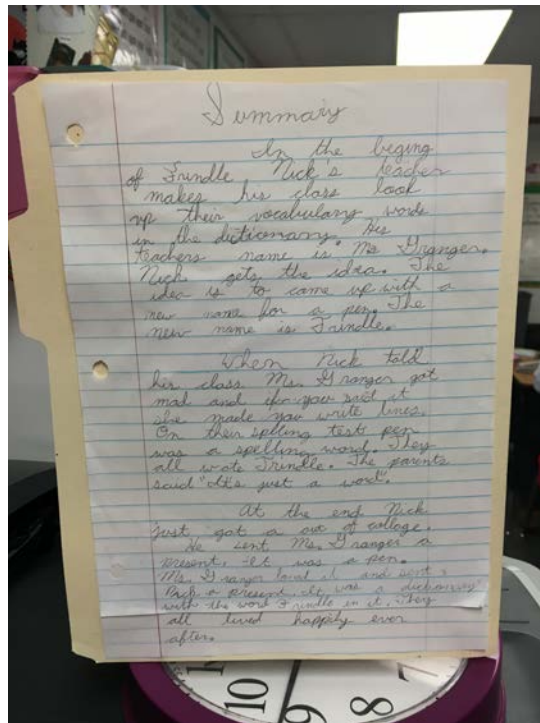 Summary
In the beging
of Frindle Nick's teacher
makes his class look
up their vocabulary words
in the dicticonary. His
teachers name is Ms Granger.
Nick gets the idea. The
idea is to came up with a
new name for a pen. The
new name is Frindle.
When Nick told
his class Ms. Granger got
mad and if you said it
she made you write lines.
On their splling test pen
was a spelling word. They
all wrote Frindle. The parents
said "It's just a word".
At the end Nick
just got a out of collage.
He sent Ms. Granger a
present. It was a pen.
Ms. Granger loved it and sent
Nick a present. It was a dictionary
with the word Frindle in it. They
all lived happily ever
after.
10
9
8